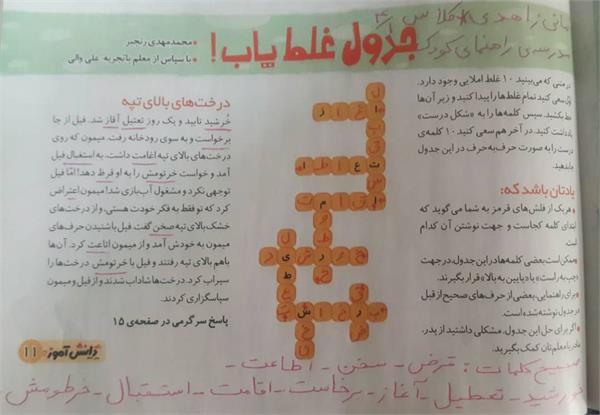 مانی زاهدی کلاس ۴/۱
مدرسی راهنمای کودک
جدول غلط یاب!
محمدمهدی رنجبر
با سپاس از معلم باتجربه علی والی
در متنی که می‌بینید ۱۰ غلط املایی وجود دارد.
اول سعی کنید تمام غلط‌ها را پیدا کنید و زیر آن‌ها
خط بکشید. سپس کلمه‌ها را به «شکل درست»
یادداشت کنید. در آخر هم سعی کنید ۱۰ کلمه‌ی
درست را به صورت حرف‌به‌حرف در این جدول
جا بدهید.
یادتان باشد که:
هریک از فلش‌های قرمز به شما می‌گوید که
ابتدای کلمه کجاست و جهت نوشتن آن کدام
است.
ممکن است بعضی کلمه‌ها در این جدول، در جهت
«چپ به راست» یا «پایین به بالا» قرار بگیرند.
برای راهنمایی، بعضی از حرف‌های صحیح از قبل
در جدول نوشته شده است.
اگر برای حل این جدول، مشکلی داشتید از پدر،
مادر یا معلم‌تان کمک بگیرید.
درخت‌های بالای تپه
خُرشید تابید و یک روز تعتیل آقاز شد. فیل از جا
برخواست و به سوی رودخانه رفت. میمون که روی
درخت‌های بالای تپه اغامت داشت، به استغبال فیل
آمد و خواست خرتومش را به او قرظ دهد! امّا فیل
توجهی نکرد و مشغول آب‌بازی شد! میمون اعتراض
کرد که تو فقط به فکر خودت هستی. و از درخت‌های
خشک بالای تپه صخن گفت. فیل با شنیدن حرف‌های
میمون به خودش آمد و از میمون اتاعت کرد. آن‌ها
باهم بالای تپه رفتند و فیل با خرتومش درخت‌ها را
سیراب کرد. درخت‌ها شاداب شدند و از فیل و میمون
سپاسگزاری کردند.
پاسخ سرگرمی در صفحه‌ی ۱۵
دانش آموز ۱۱
صحیح کلمات: قرض - سخن - اطاعت -
خورشید - تعطیل - آغاز - برخاست - اقامت - استقبال - خرطومش